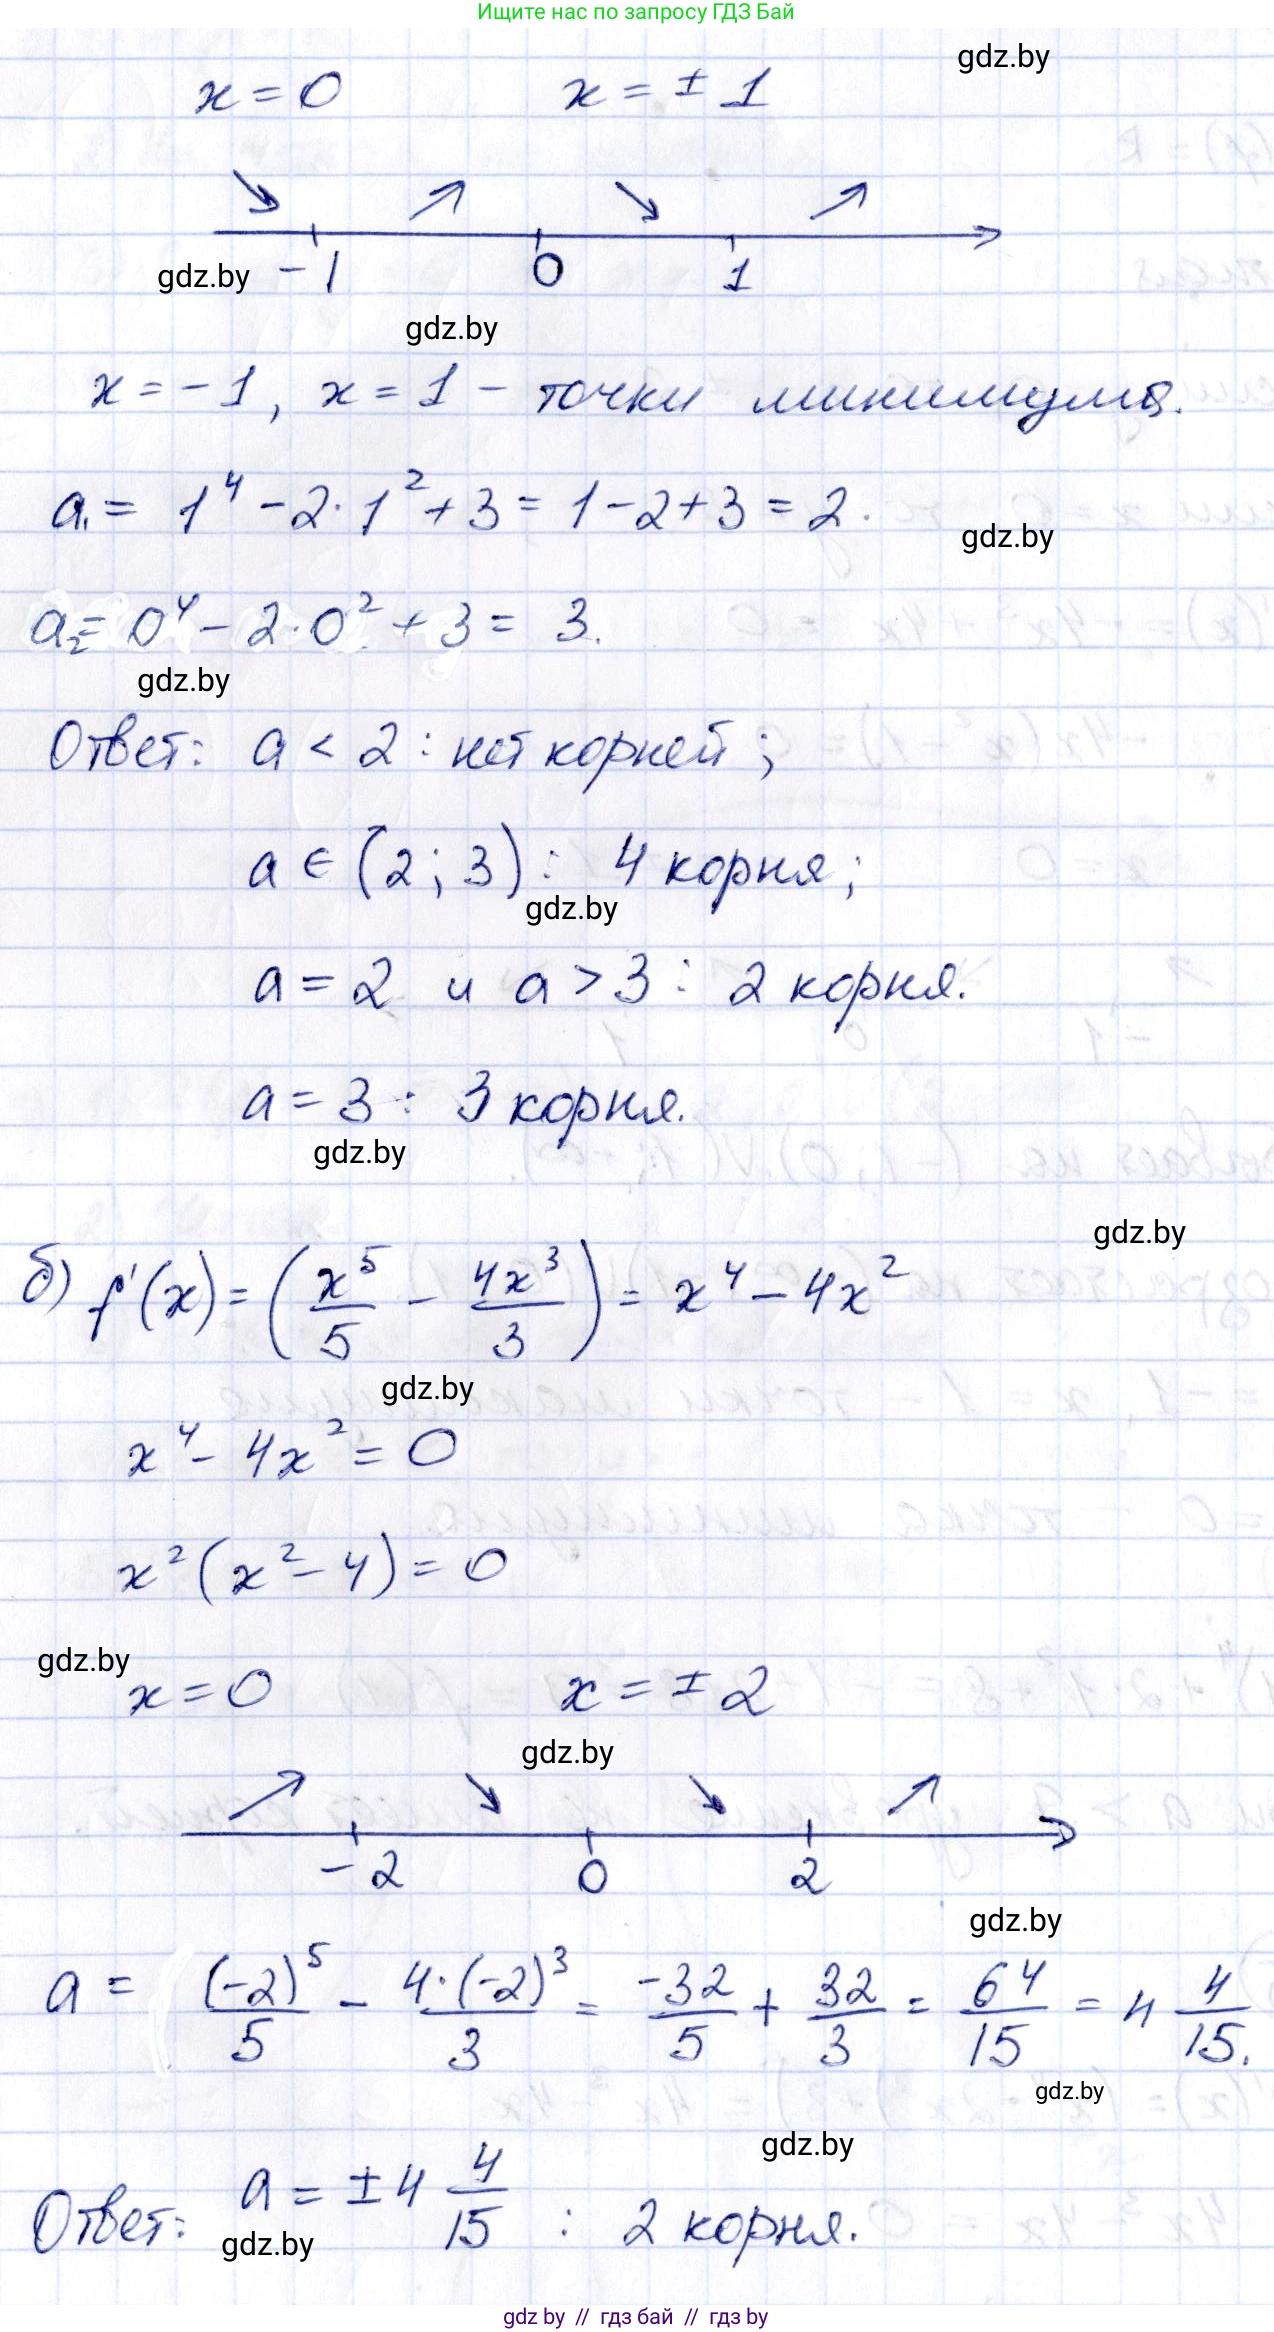 Ищите нас по запросу ГДЗ Бай
gdz.by
x = 0 x = ± 1
-1 0 1
gdz.by
gdz.by
x = -1, x = 1 - точки минимума.
a₁ = 1⁴ - 2·1² + 3 = 1 - 2 + 3 = 2.
gdz.by
a₂ = 0⁴ - 2·0² + 3 = 3.
gdz.by
Ответ: a < 2 : нет корней;
a ∈ (2; 3) : 4 корня;
gdz.by
a = 2 и a > 3 : 2 корня.
a = 3 : 3 корня.
gdz.by
gdz.by
б) f'(x) = (x⁵/5 - 4x³/3) = x⁴ - 4x²
gdz.by
x⁴ - 4x² = 0
x²(x² - 4) = 0
gdz.by
x = 0 x = ± 2
gdz.by
-2 0 2
gdz.by
a = (-2)⁵/5 - 4·(-2)³/3 = -32/5 + 32/3 = 64/15 = 4 4/15.
gdz.by
gdz.by
Ответ: a = ±4 4/15 : 2 корня.
gdz.by
gdz by // гдз бай // гдз by